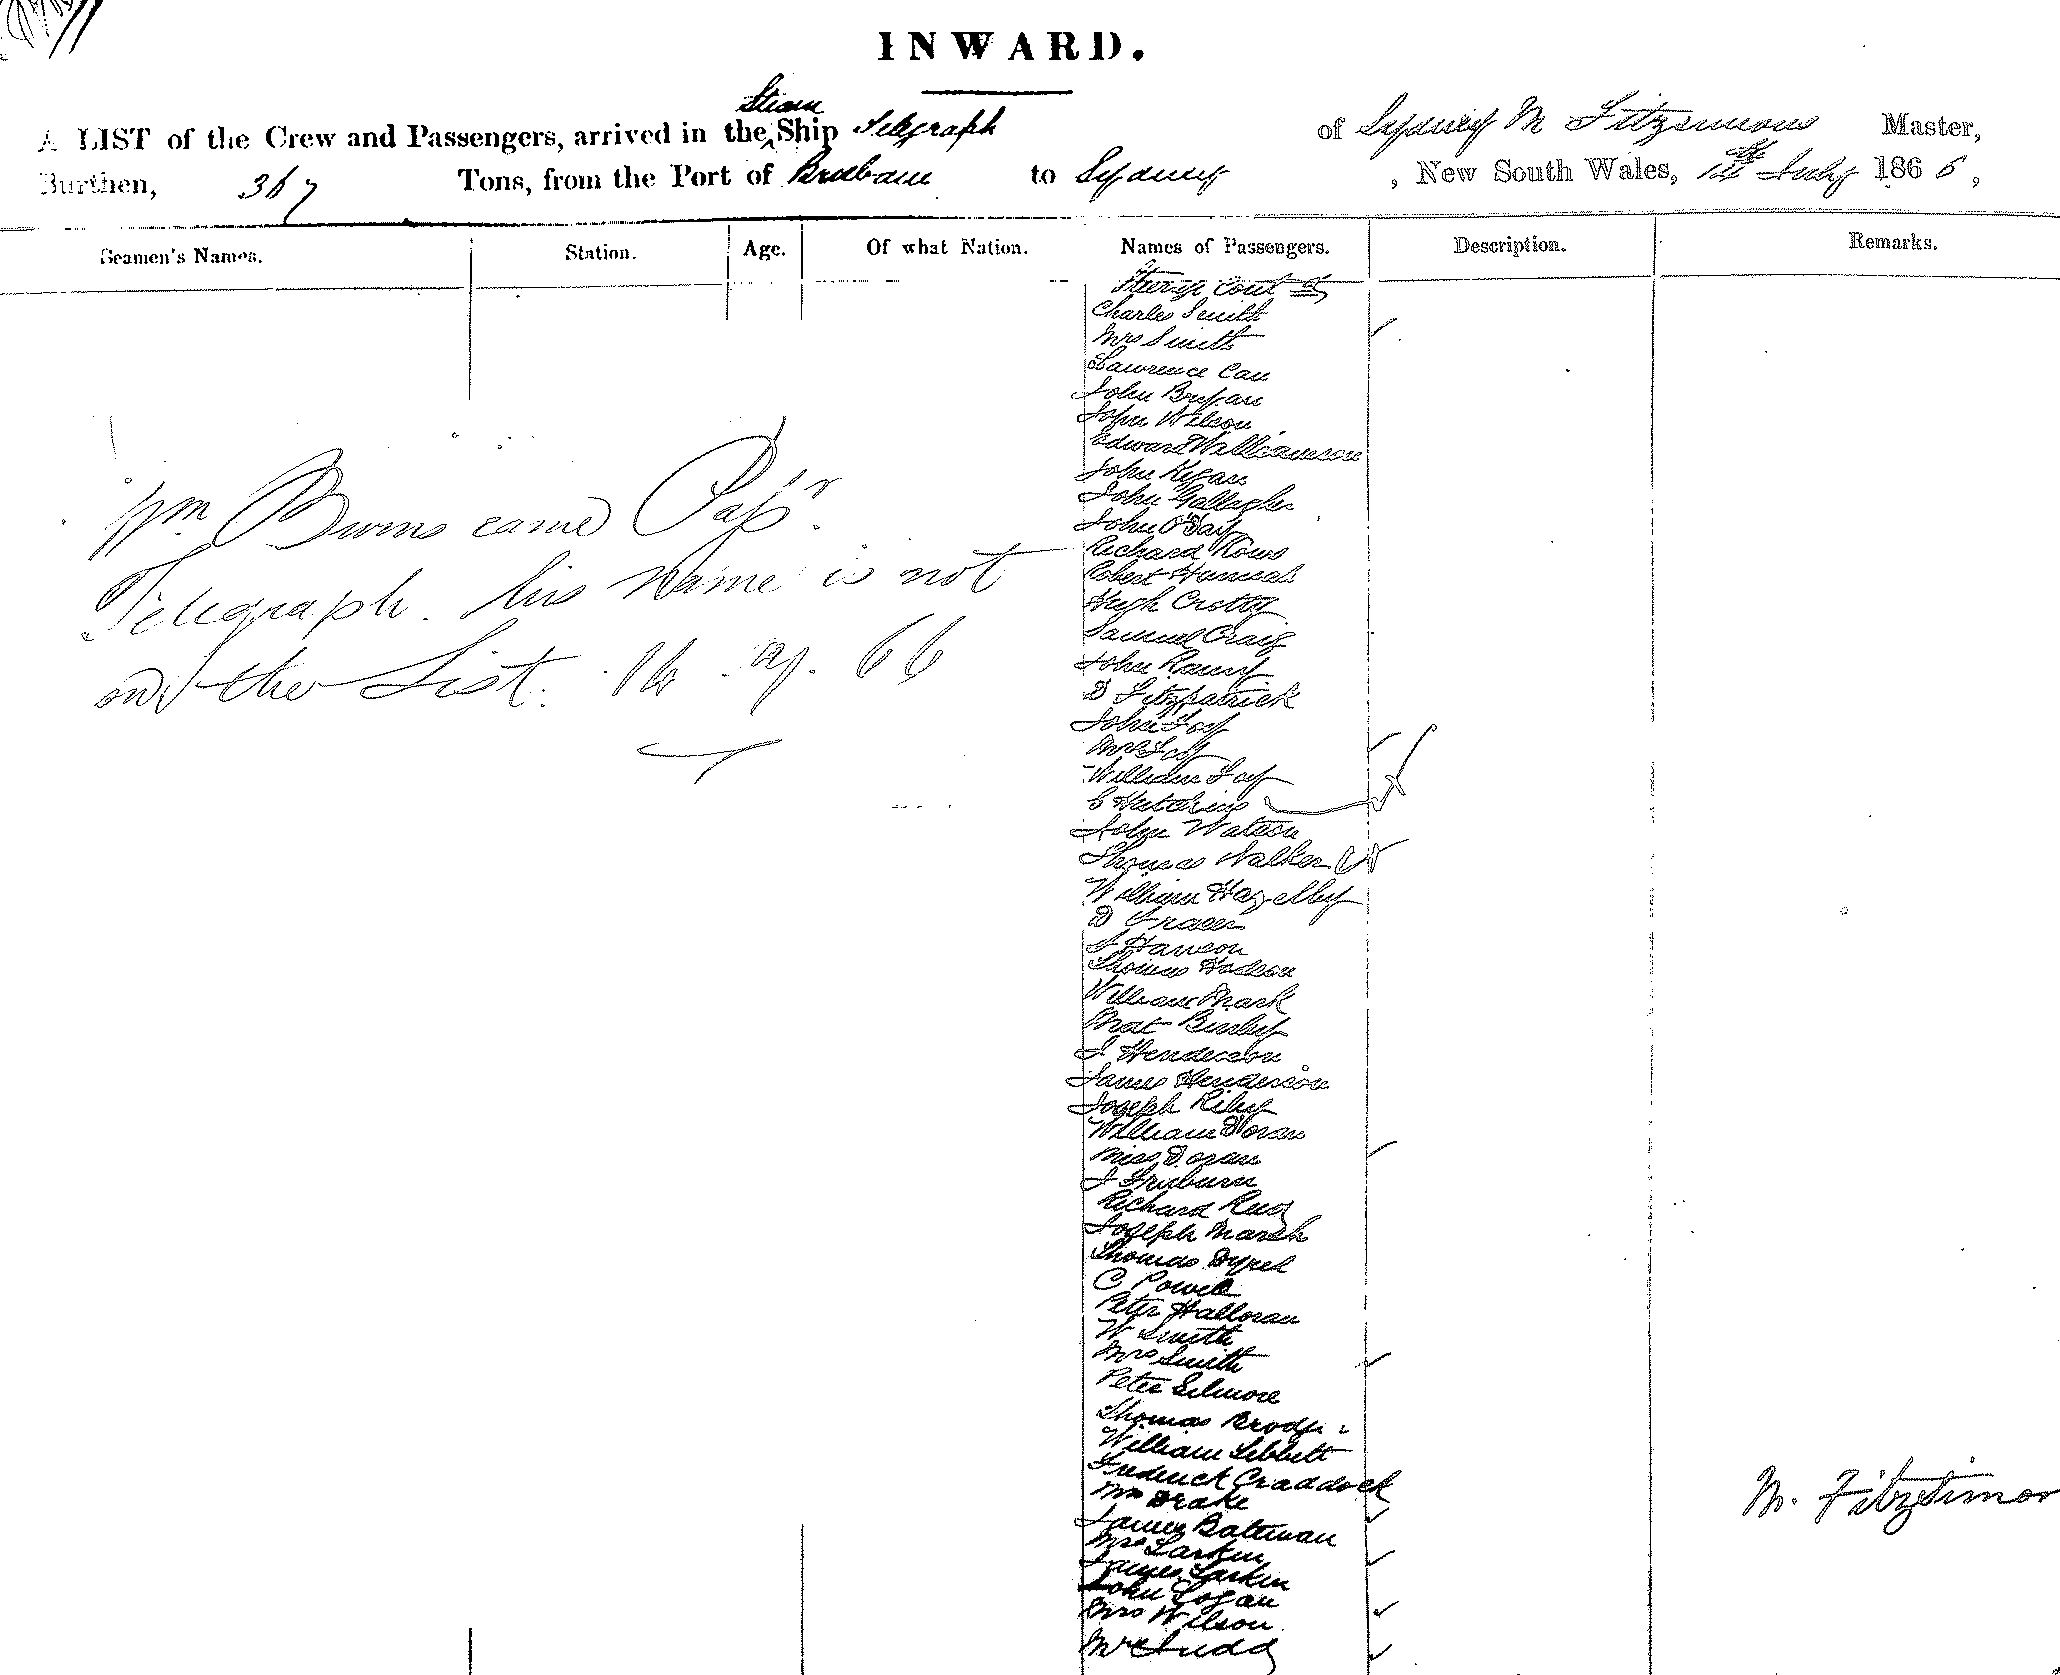 INWARD.
A LIST of the Crew and Passengers, arrived in the Steam Ship Telegraph of Sydney M Fitzsimons Master,
Burthen, 367 Tons, from the Port of Brisbane to Sydney, New South Wales, July 1866,
Seamen's Names. Station. Age. Of what Nation. Names of Passengers. Description. Remarks.
Steerage Cont d
Charles Smith
Mrs Smith
Lawrence
John Bryan
John Wilson
Edward Williamson
John Regan
John Gallagher
John O'Day
Richard Rows
Robert
Hugh Crotty
Samuel Craig
John
D Fitzpatrick
John Foy
Mrs Foy
William Foy
Hutchins
John Watson
Thomas Walker
William Hazelby
D Fraser
Hanson
Thomas Hodson
William Mark
Mat
J Henderson
James Henderson
Joseph Riley
William Doran
Miss Doran
J
Richard
Joseph Marsh
Thomas
C Powell
Peter Halloran
W Smith
Mrs Smith
Peter Gilmore
Thomas
William Sibbett
Frederick Craddock
Drake
James Bateman
Mrs Larkin
James Larkin
John Logan
Mrs Wilson
Judd
Wm Burns came Pass'r.
Telegraph. his name is not
on the List. 16 66
M. Fitzsimon